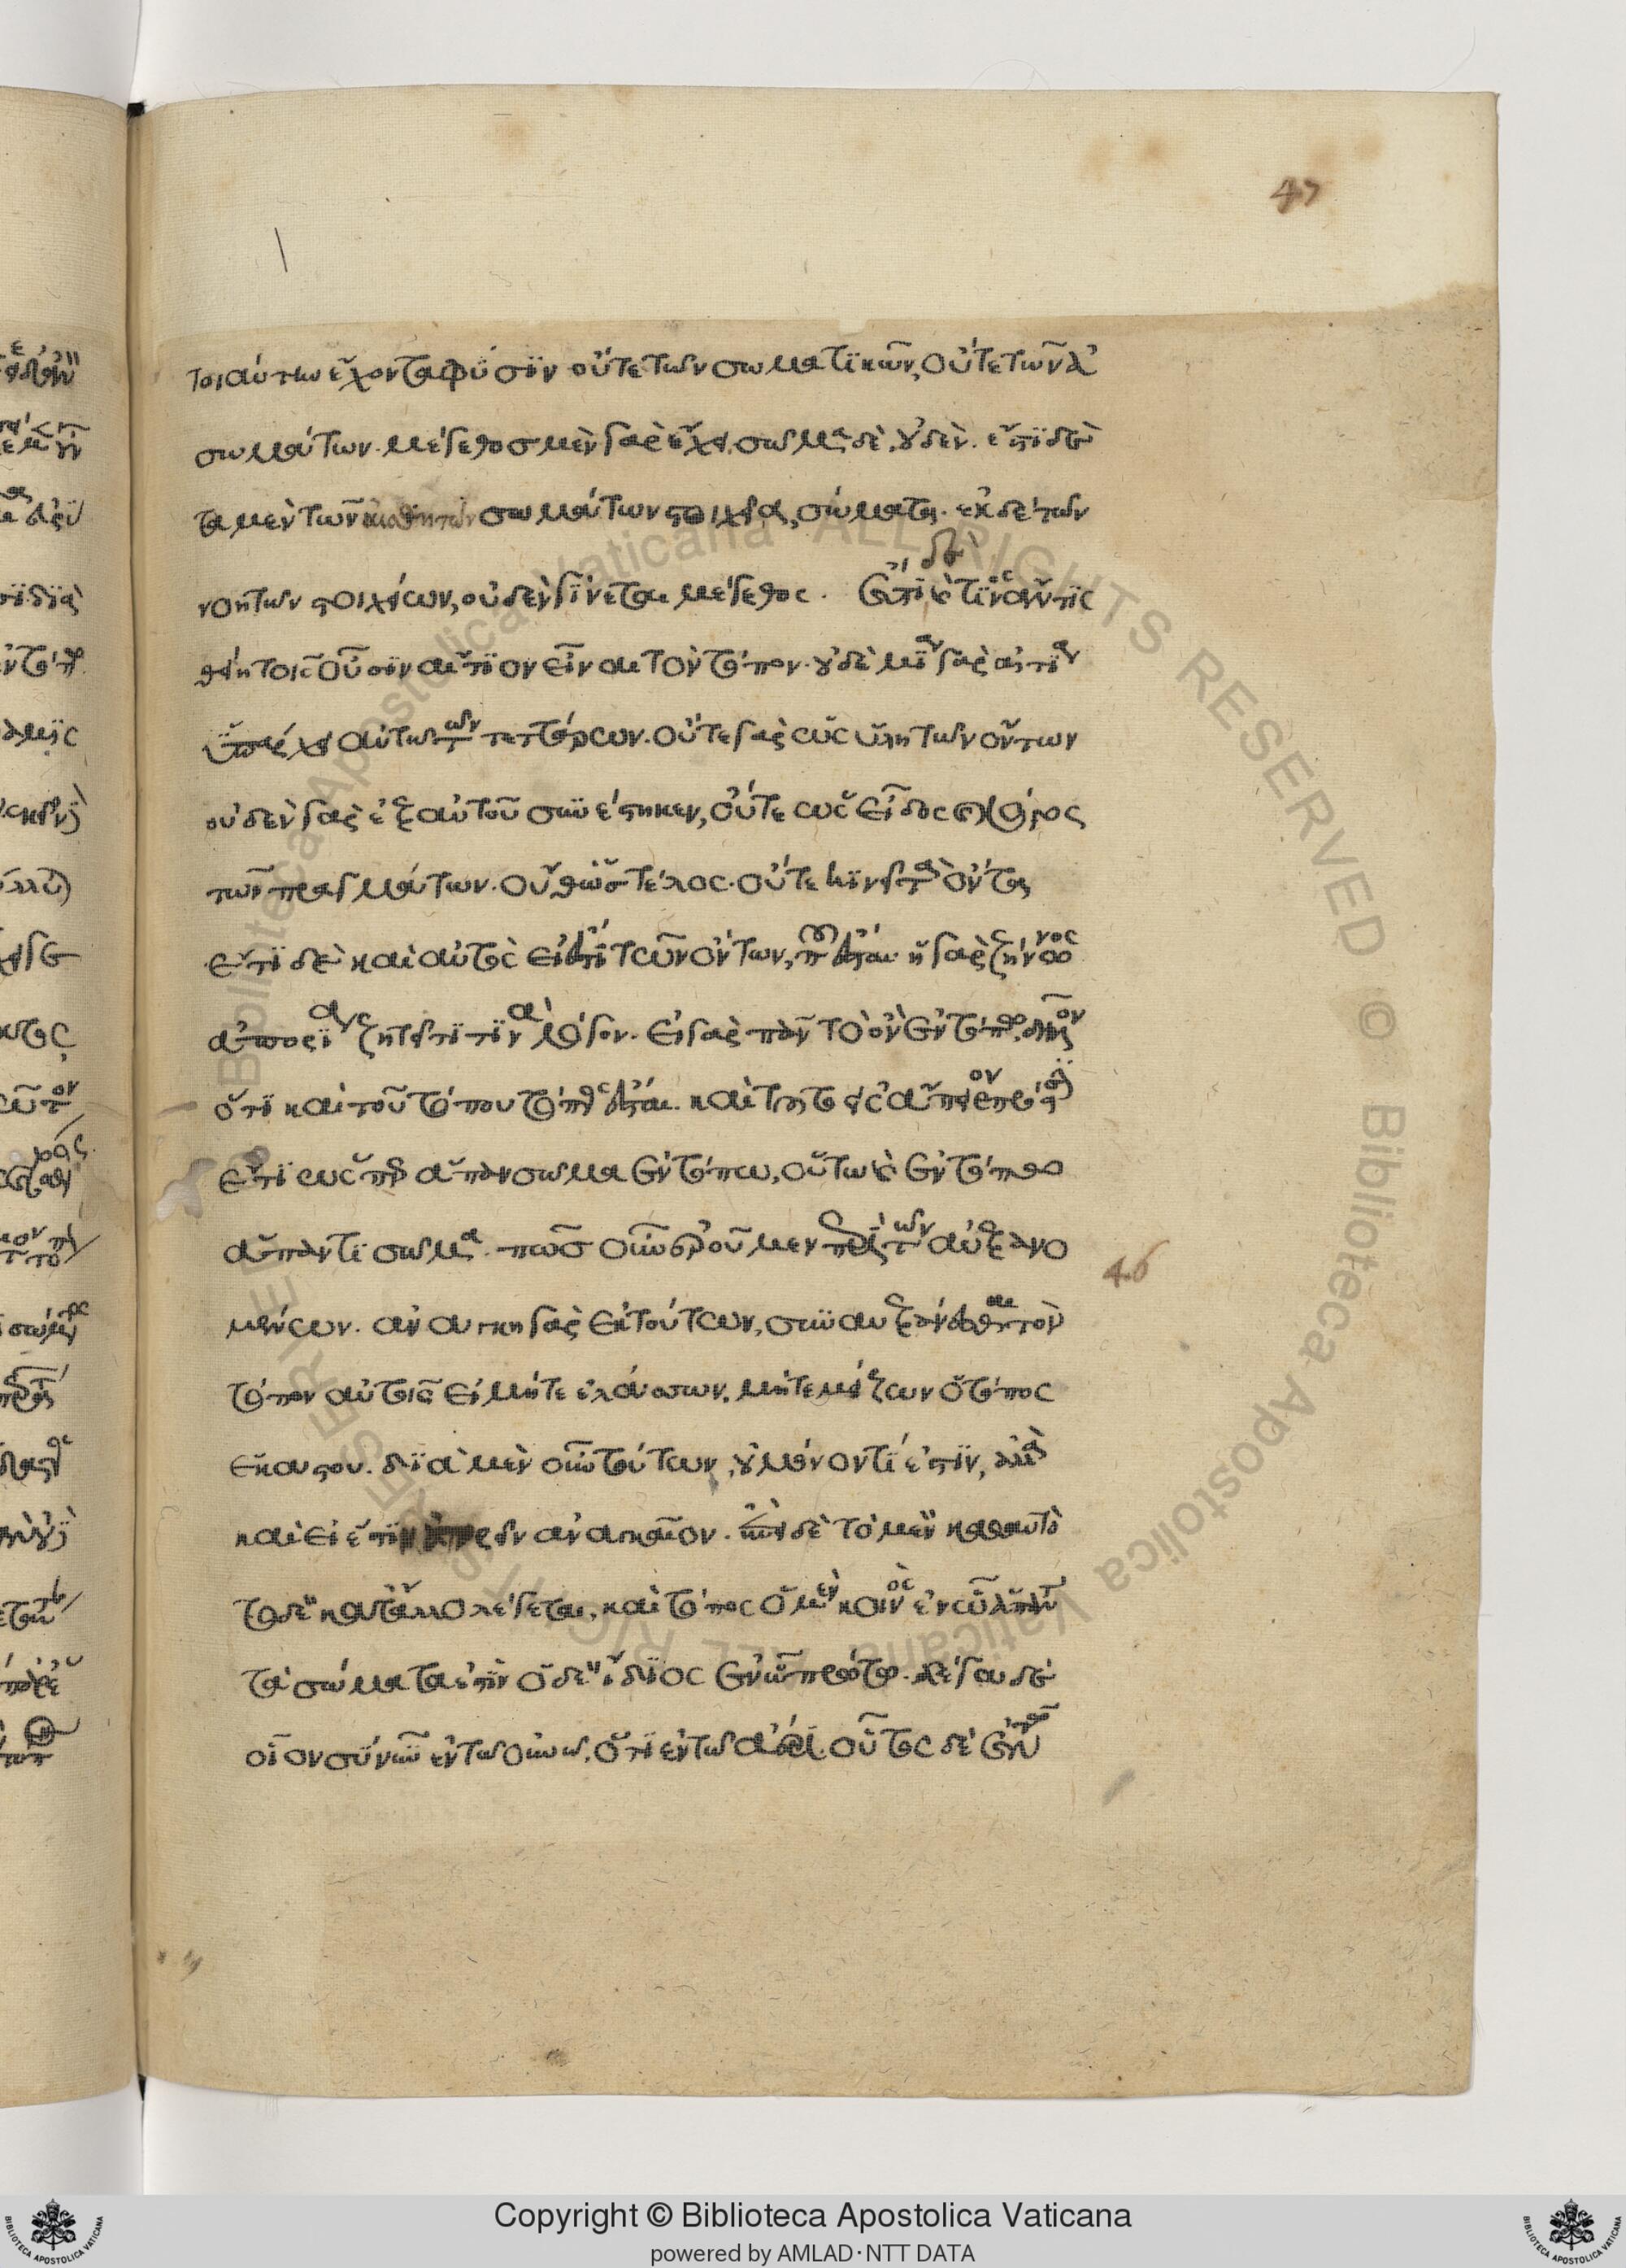 47
τοιαύτην ἔχοντα φύσϊν οὔτε τῶν σωματϊκῶν, οὔτε τῶν ἀ
σωμάτων. μέγεθος μὲν γὰρ ἔχει. σῶμα δὲ, οὐδέν. ἔστϊ δὲ
τὰ μὲν τῶν αἰσθητῶν σωμάτων στοιχεῖα, σώματα. ἐκ δὲ τῶν
νοητῶν στοιχείων, οὐδὲν γΐνεται μέγεθος. ἔτϊ δὲ καὶ τΐνος ἄν τϊς
θείη τοῖς οὖσϊν αἴτϊον εἶναι τὸν τόπον. οὐδεμΐαν γὰρ αἰτΐαν
ὑπάρχει αὐτῶ τῶν τεττάρων. οὔτε γὰρ ὡς ὕλη τῶν ὄντων
οὐδὲν γὰρ ἐξ αὐτοῦ συνέστηκεν, οὔτε ὡς εἶδος καὶ λόγος
τῶν πραγμάτων. οὔθ' ὡς τέλος. οὔτε κϊνεῖ τὰ ὄντα
ἔτϊ δὲ καὶ αὐτὸς εἰ ἔστϊ τῶν ὄντων, ποῦ ἔσται. ἡ γὰρ ζήνωνος
ἀπορΐα ζητεῖ τϊνὰ λόγον. εἰ γὰρ πᾶν τὸ ὂν ἐν τόπω, δῆλον
ὅτϊ καὶ τοῦ τόπου τόπος ἔσται. καὶ τοῦτο εἰς ἄπειρον πρόεισϊ
ἔτϊ ὥσπερ ἅπαν σῶμα ἐν τόπω, οὕτω καὶ ἐν τόπω
ἅπαντϊ σῶμα. πῶς οὖν ἐροῦμεν περὶ τῶν αὐξανο
46
μένων. ἀνάγκη γὰρ ἐκ τούτων, συναυξάνεσθαι τὸν
τόπον αὐτοῖς εἰ μήτε ἐλάσσων, μήτε μείζων ὁ τόπος
ἑκάστου. δϊὰ μὲν οὖν τούτων, οὐ μόνον τΐ ἐστϊν, ἀλλὰ
καὶ εἰ ἔστϊν ἀπορεῖν ἀναγκαῖον. ἐπεὶ δὲ τὸ μὲν καθαυτὸ
τὸ δὲ κατάλλο λέγεται, καὶ τόπος ὁ μὲν κοινὸς ἐν ᾧ ἅπαντα
τὰ σώματα ἐστὶν ὁ δὲ ἴδϊος ἐν ᾧ πρώτω. λέγω δὲ
οἷον σὺ νῦν ἐν τῶ οὐνῶ, ὅτϊ ἐν τῶ ἀέρι. οὗτος δὲ ἐν τῶ οὐνῶ